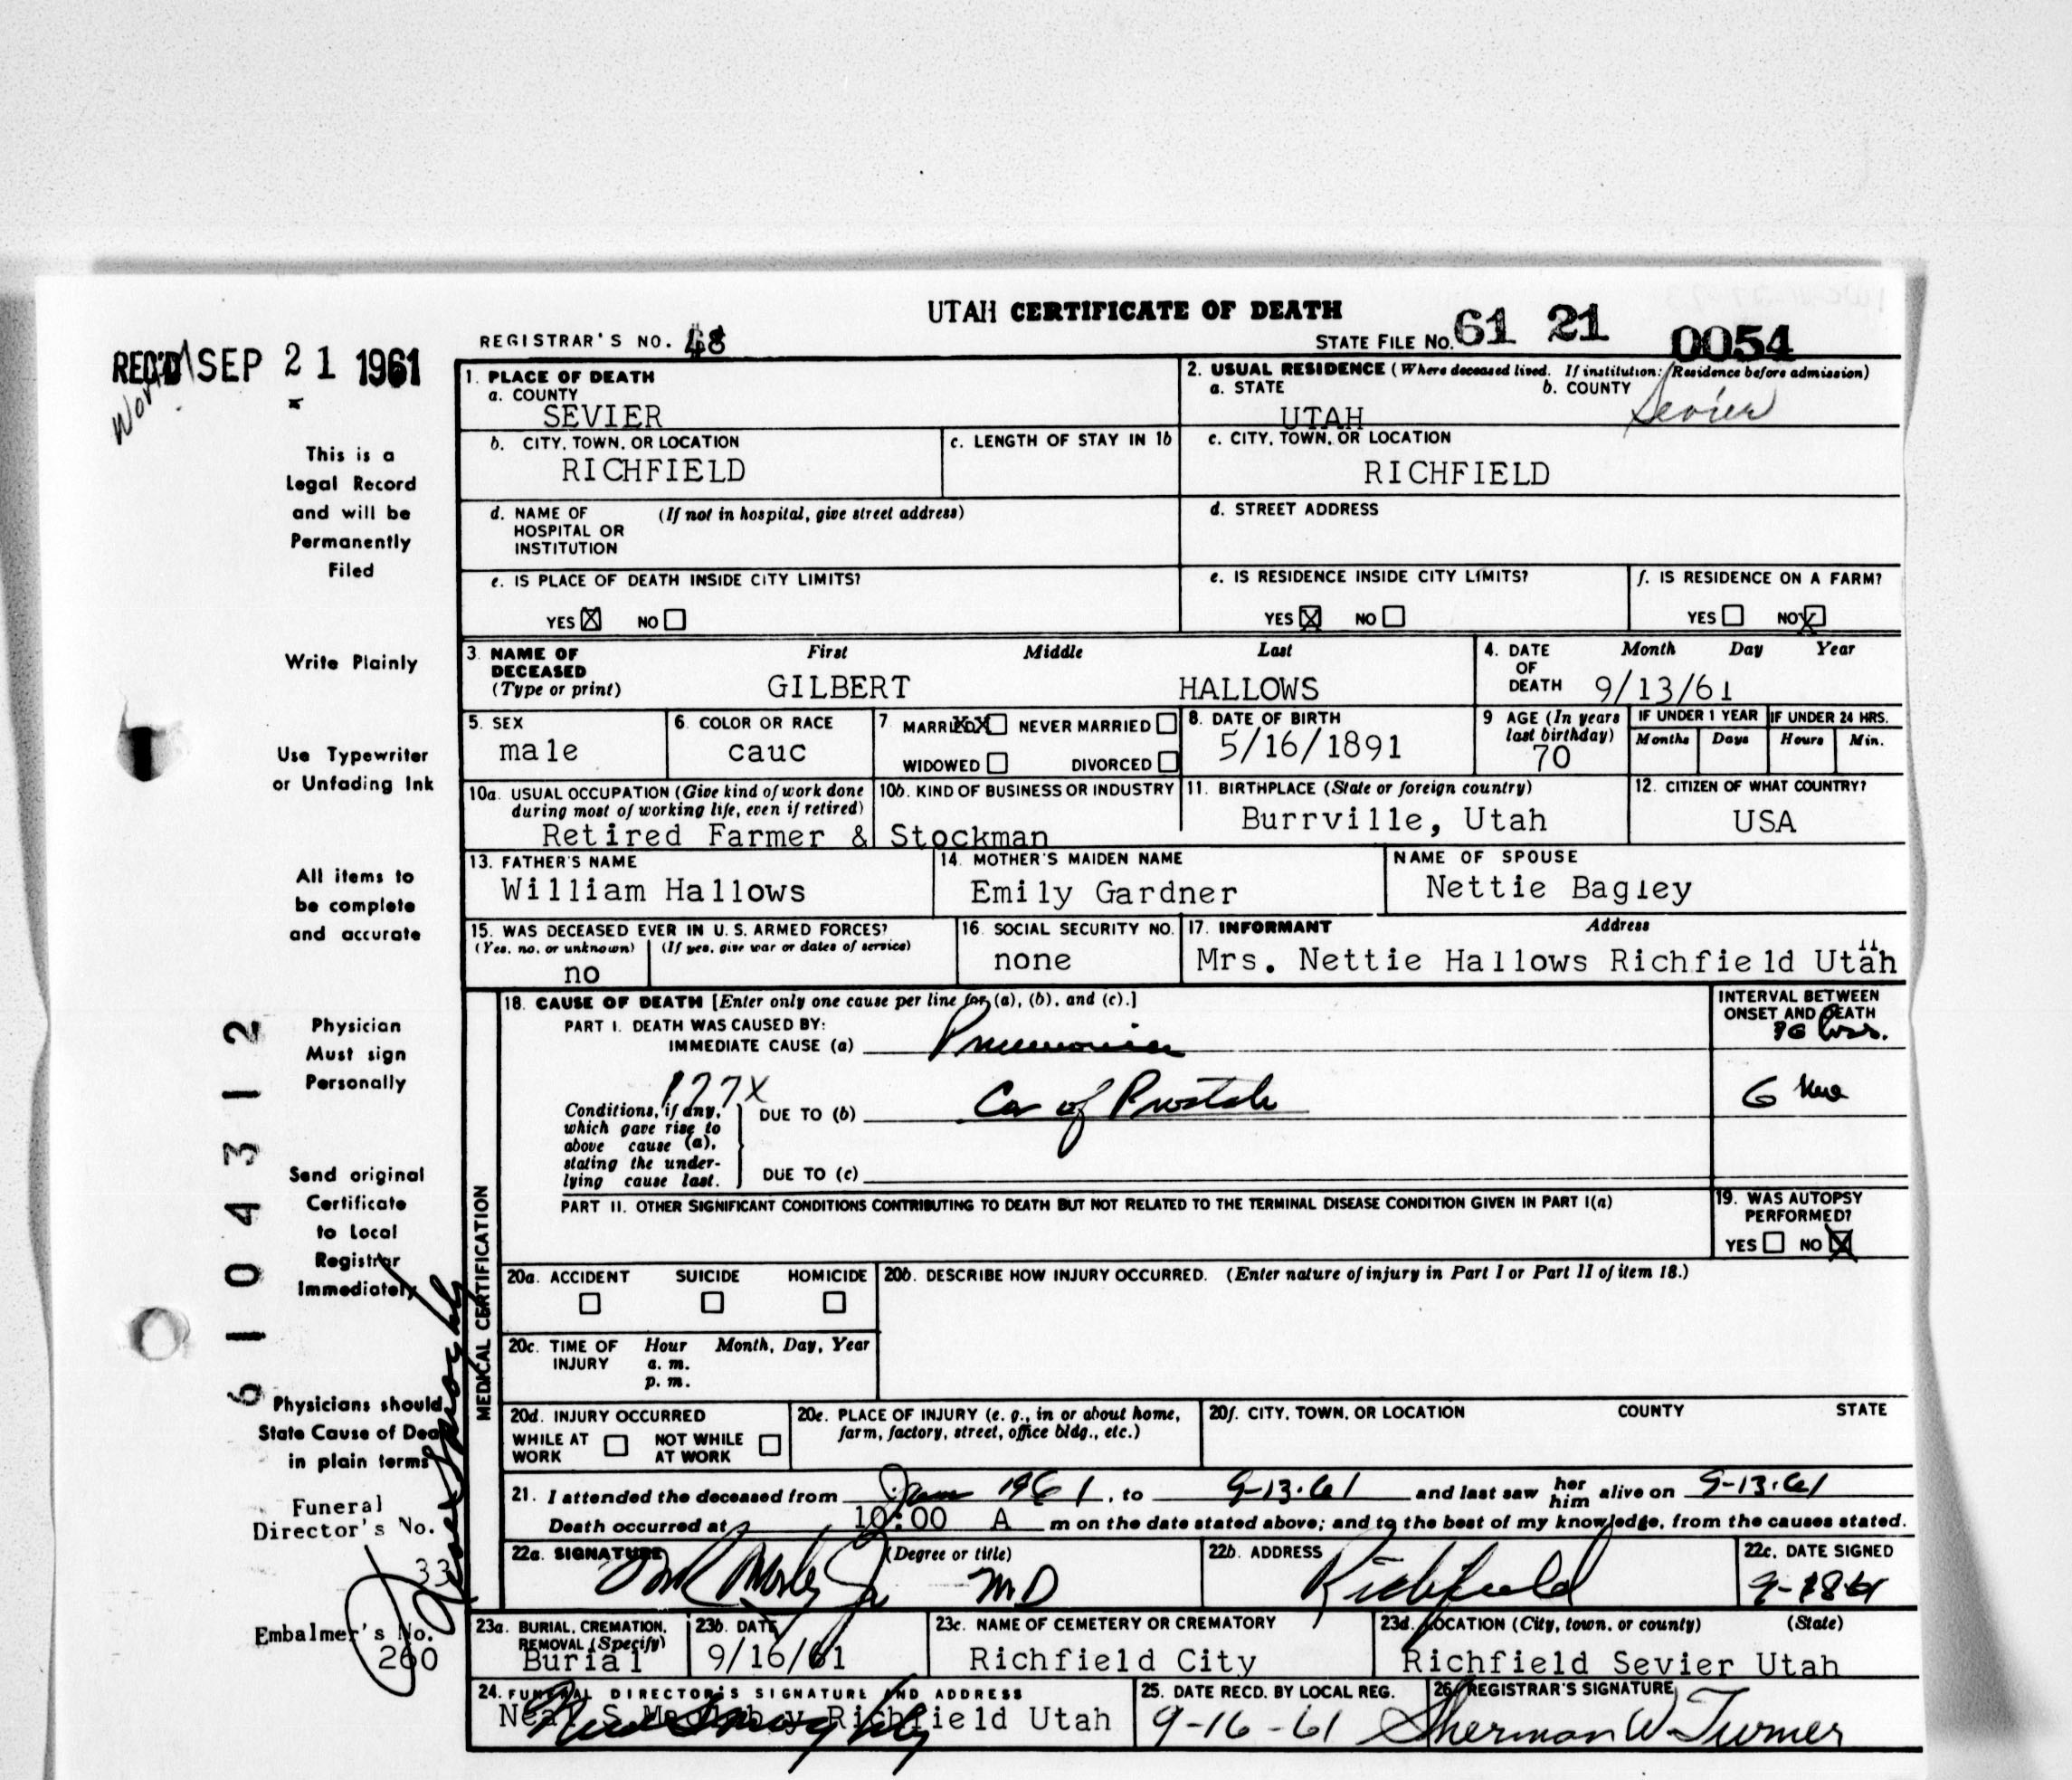 UTAH CERTIFICATE OF DEATH
REGISTRAR'S NO. 48
STATE FILE NO. 61 21 0054
REC'D SEP 21 1961
This is a
Legal Record
and will be
Permanently
Filed
Write Plainly
Use Typewriter
or Unfading Ink
All items to
be complete
and accurate
Physician
Must sign
Personally
Send original
Certificate
to Local
Registrar
Immediately
Physicians should
State Cause of Death
in plain terms
Funeral
Director's No.
33
Embalmer's No.
260
6104312
1. PLACE OF DEATH
a. COUNTY
SEVIER
2. USUAL RESIDENCE (Where deceased lived. If institution: Residence before admission)
a. STATE b. COUNTY
UTAH Sevier
b. CITY, TOWN, OR LOCATION
RICHFIELD
c. LENGTH OF STAY IN 1b
c. CITY, TOWN, OR LOCATION
RICHFIELD
d. NAME OF (If not in hospital, give street address)
HOSPITAL OR
INSTITUTION
d. STREET ADDRESS
e. IS PLACE OF DEATH INSIDE CITY LIMITS?
YES X NO
e. IS RESIDENCE INSIDE CITY LIMITS?
YES X NO
f. IS RESIDENCE ON A FARM?
YES NO X
3. NAME OF First Middle Last
DECEASED
(Type or print) GILBERT HALLOWS
4. DATE Month Day Year
OF
DEATH 9/13/61
5. SEX
male
6. COLOR OR RACE
cauc
7. MARRIED XX NEVER MARRIED
WIDOWED DIVORCED
8. DATE OF BIRTH
5/16/1891
9 AGE (In years
last birthday)
70
IF UNDER 1 YEAR IF UNDER 24 HRS.
Months Days Hours Min.
10a. USUAL OCCUPATION (Give kind of work done
during most of working life, even if retired)
10b. KIND OF BUSINESS OR INDUSTRY
Retired Farmer & Stockman
11. BIRTHPLACE (State or foreign country)
Burrville, Utah
12. CITIZEN OF WHAT COUNTRY?
USA
13. FATHER'S NAME
William Hallows
14. MOTHER'S MAIDEN NAME
Emily Gardner
NAME OF SPOUSE
Nettie Bagley
15. WAS DECEASED EVER IN U.S. ARMED FORCES?
(Yes, no, or unknown) (If yes, give war or dates of service)
no
16. SOCIAL SECURITY NO.
none
17. INFORMANT Address
Mrs. Nettie Hallows Richfield Utah
MEDICAL CERTIFICATION
18. CAUSE OF DEATH [Enter only one cause per line for (a), (b), and (c).]
INTERVAL BETWEEN
ONSET AND DEATH
PART I. DEATH WAS CAUSED BY:
IMMEDIATE CAUSE (a) Pneumonia hrs.
177X
Conditions, if any,
which gave rise to
above cause (a),
stating the under-
lying cause last.
DUE TO (b) Ca of Prostate 6
DUE TO (c)
PART II. OTHER SIGNIFICANT CONDITIONS CONTRIBUTING TO DEATH BUT NOT RELATED TO THE TERMINAL DISEASE CONDITION GIVEN IN PART I(a)
19. WAS AUTOPSY
PERFORMED?
YES NO X
20a. ACCIDENT SUICIDE HOMICIDE
20b. DESCRIBE HOW INJURY OCCURRED. (Enter nature of injury in Part I or Part II of item 18.)
20c. TIME OF Hour Month, Day, Year
INJURY a. m.
p. m.
20d. INJURY OCCURRED
WHILE AT NOT WHILE
WORK AT WORK
20e. PLACE OF INJURY (e. g., in or about home,
farm, factory, street, office bldg., etc.)
20f. CITY, TOWN, OR LOCATION COUNTY STATE
21. I attended the deceased from Jan 1961, to 9-13-61 and last saw her him alive on 9-13-61
Death occurred at 10:00 A m on the date stated above; and to the best of my knowledge, from the causes stated.
22a. SIGNATURE (Degree or title)
MD
22b. ADDRESS
Richfield
22c. DATE SIGNED
23a. BURIAL, CREMATION,
REMOVAL (Specify)
Burial
23b. DATE
9/16/61
23c. NAME OF CEMETERY OR CREMATORY
Richfield City
23d. LOCATION (City, town, or county) (State)
Richfield Sevier Utah
24. FUNERAL DIRECTOR'S SIGNATURE AND ADDRESS
Neal S Magleby Richfield Utah
25. DATE RECD. BY LOCAL REG.
9-16-61
26. REGISTRAR'S SIGNATURE
Sherman W. Turner